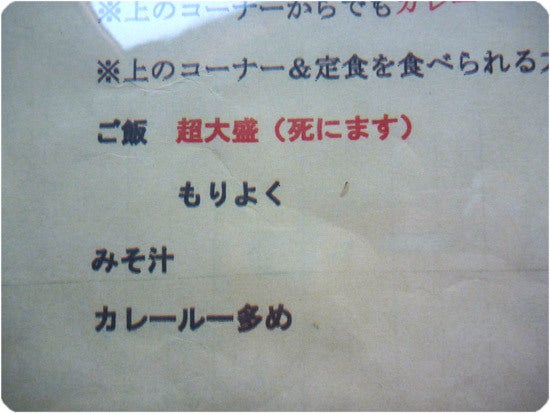 ※上のコーナーからでもカレー
※上のコーナー＆定食を食べられる
ご飯　超大盛（死にます）
もりよく
みそ汁
カレールー多め